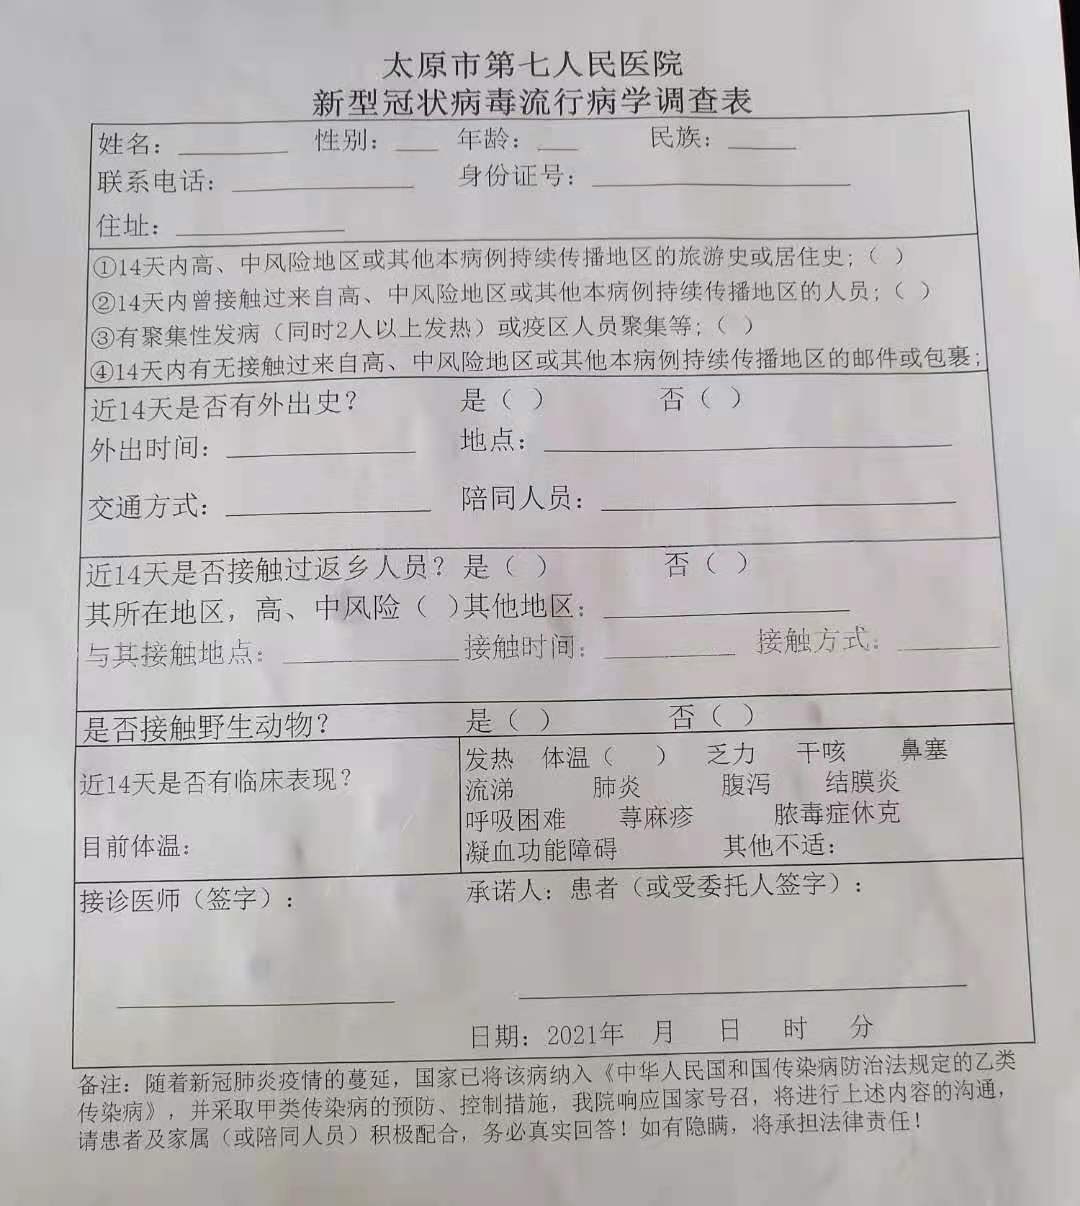 太原市第七人民医院
新型冠状病毒流行病学调查表
姓名：________ 性别：___ 年龄：___ 民族：_____
联系电话：_____________ 身份证号：___________________
住址：____________
①14天内高、中风险地区或其他本病例持续传播地区的旅游史或居住史；（ ）
②14天内曾接触过来自高、中风险地区或其他本病例持续传播地区的人员；（ ）
③有聚集性发病（同时2人以上发热）或疫区人员聚集等；（ ）
④14天内有无接触过来自高、中风险地区或其他本病例持续传播地区的邮件或包裹；
近14天是否有外出史？ 是（ ） 否（ ）
外出时间：______________ 地点：______________________________
交通方式：_______________ 陪同人员：__________________________
近14天是否接触过返乡人员？ 是（ ） 否（ ）
其所在地区，高、中风险（ ）其他地区：__________________
与其接触地点：_____________接触时间：__________ 接触方式：________
是否接触野生动物？ 是（ ） 否（ ）
近14天是否有临床表现？
目前体温：
发热 体温（ ） 乏力 干咳 鼻塞
流涕 肺炎 腹泻 结膜炎
呼吸困难 荨麻疹 脓毒症休克
凝血功能障碍 其他不适：
接诊医师（签字）：
承诺人：患者（或受委托人签字）：
日期：2021年 月 日 时 分
备注：随着新冠肺炎疫情的蔓延，国家已将该病纳入《中华人民国和国传染病防治法规定的乙类
传染病》，并采取甲类传染病的预防、控制措施，我院响应国家号召，将进行上述内容的沟通，
请患者及家属（或陪同人员）积极配合，务必真实回答！如有隐瞒，将承担法律责任！